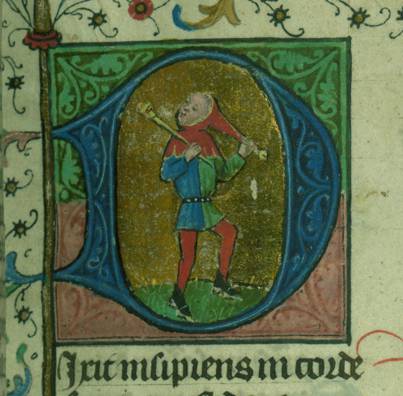 D
Ixit insipiens in corde